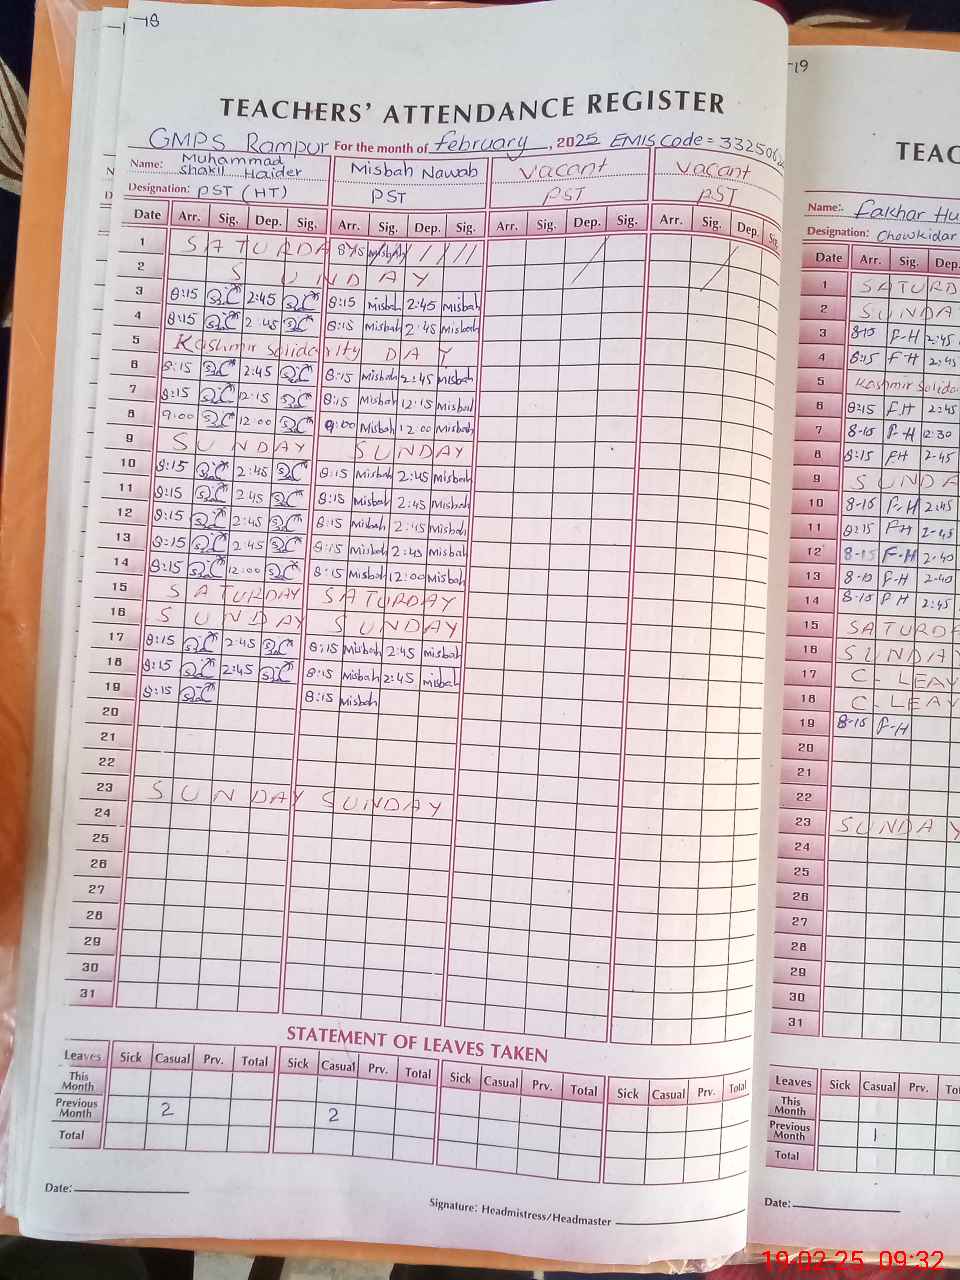 -18
TEACHERS' ATTENDANCE REGISTER
GMPS Rampur For the month of february, 2025 EMIS Code = 332506
Name: Muhammad Shakil Haider Misbah Nawab Vacant Vacant
Designation: PST (HT) PST PST PST
Date Arr. Sig. Dep. Sig. Arr. Sig. Dep. Sig. Arr. Sig. Dep. Sig. Arr. Sig. Dep. Sig.
1 SATURDA
2 SUNDAY
3 8:15 2:45 8:15 misbah 2:45 misbah
4 8:15 2:45 8:15 misbah 2:45 Misbah
5 Kashmir Solidarity DAY
6 8:15 2:45 8:15 Misbah 2:45 Misbah
7 8:15 12:15 8:15 Misbah 12:15 Misbah
8 9:00 12:00 9:00 Misbah 12:00 Misbah
9 SUNDAY SUNDAY
10 8:15 2:45 8:15 Misbah 2:45 Misbah
11 8:15 2:45 8:15 Misbah 2:45 Misbah
12 8:15 2:45 8:15 Misbah 2:45 Misbah
13 8:15 2:45 8:15 Misbah 2:45 Misbah
14 8:15 12:00 8:15 Misbah 12:00 Misbah
15 SATURDAY SATURDAY
16 SUNDAY SUNDAY
17 8:15 2:45 8:15 Misbah 2:45 misbah
18 8:15 2:45 8:15 misbah 2:45 misbah
19 8:15 8:15 misbah
20
21
22
23 SUNDAY SUNDAY
24
25
26
27
28
29
30
31
STATEMENT OF LEAVES TAKEN
Leaves Sick Casual Prv. Total Sick Casual Prv. Total Sick Casual Prv. Total Sick Casual Prv. Total
This Month
Previous Month 2 2
Total
Date:
Signature: Headmistress/Headmaster
-19
TEAC
Name: Fakhar Hu
Designation: Chowkidar
Date Arr. Sig. Dep.
1 SATURD
2 SUNDA
3 8-15 F-H 2:45
4 8:15 F H 2:45
5 Kashmir Solida
6 8:15 F.H 2:45
7 8-15 F-H 12:30
8 8:15 FH 2-45
9 SUNDA
10 8-15 F-H 2:45
11 8:15 FH 2-45
12 8-15 F-H 2-40
13 8-10 F-H 2-40
14 8-15 F-H 2:45
15 SATURDA
16 SUNDAY
17 C-LEAV
18 C-LEAV
19 8-15 F-H
20
21
22
23 SUNDAY
24
25
26
27
28
29
30
31
Leaves Sick Casual Prv. To
This Month
Previous Month 1
Total
Date:
19-02-25 09:32